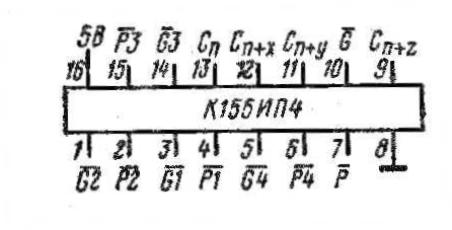 5В P̅3 G̅3 Cn Cn+x Cn+y G̅ Cn+z
16 15 14 13 12 11 10 9
К155ИП4
1 2 3 4 5 6 7 8
G̅2 P̅2 G̅1 P̅1 G̅4 P̅4 P̅